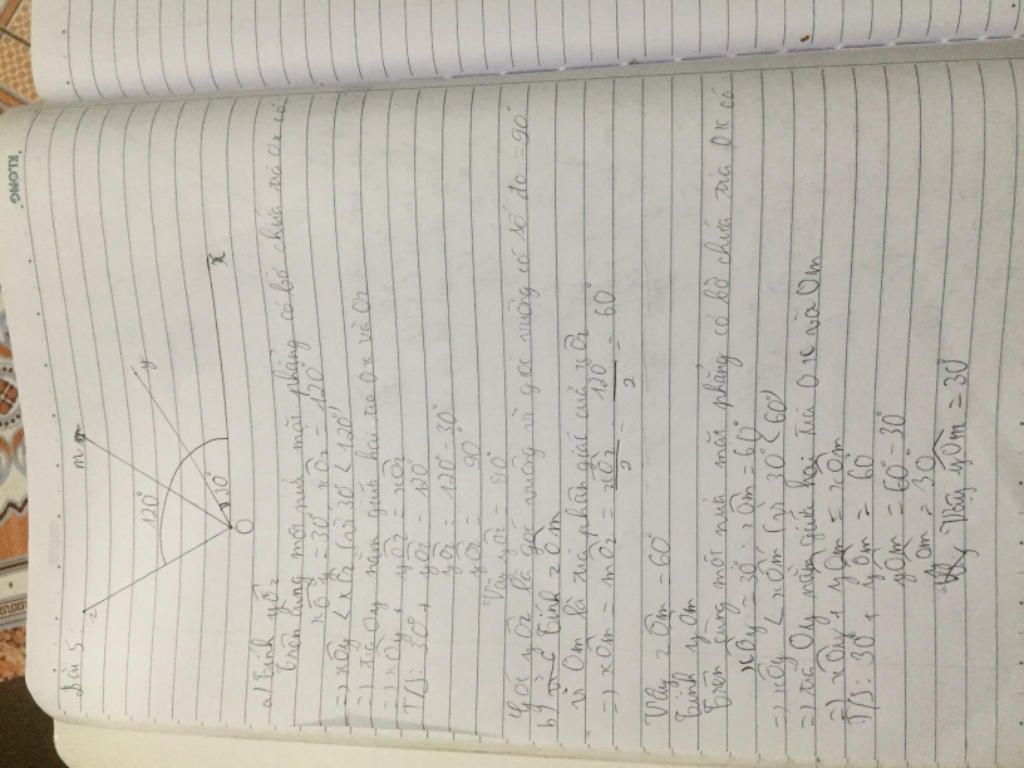 KLONG
Bài 5:
z
m
y
120°
30°
O
x
a) Tính yÔz
Trên cùng một nửa mặt phẳng có bờ chứa tia Ox có
xÔy = 30°, xÔz = 120°
=> xÔy < xÔz (vì 30° < 120°)
=> tia Oy nằm giữa hai tia Ox và Oz
=> xÔy + yÔz = xÔz
T/S: 30° + yÔz = 120°
yÔz = 120° - 30°
yÔz = 90°
Vậy yÔz = 90°
Góc yÔz là góc vuông vì góc vuông có số đo = 90°
b) Tính zÔm
Vì Om là tia phân giác của xÔz
=> xÔm = mÔz = xÔz/2 = 120°/2 = 60°
Vậy zÔm = 60°
Tính yÔm
Trên cùng một nửa mặt phẳng có bờ chứa tia Ox có
xÔy = 30°; xÔm = 60°
=> xÔy < xÔm (vì 30° < 60°)
=> tia Oy nằm giữa hai tia Ox và Om
=> xÔy + yÔm = xÔm
T/S: 30° + yÔm = 60°
yÔm = 60° - 30°
yÔm = 30°
Vậy yÔm = 30°